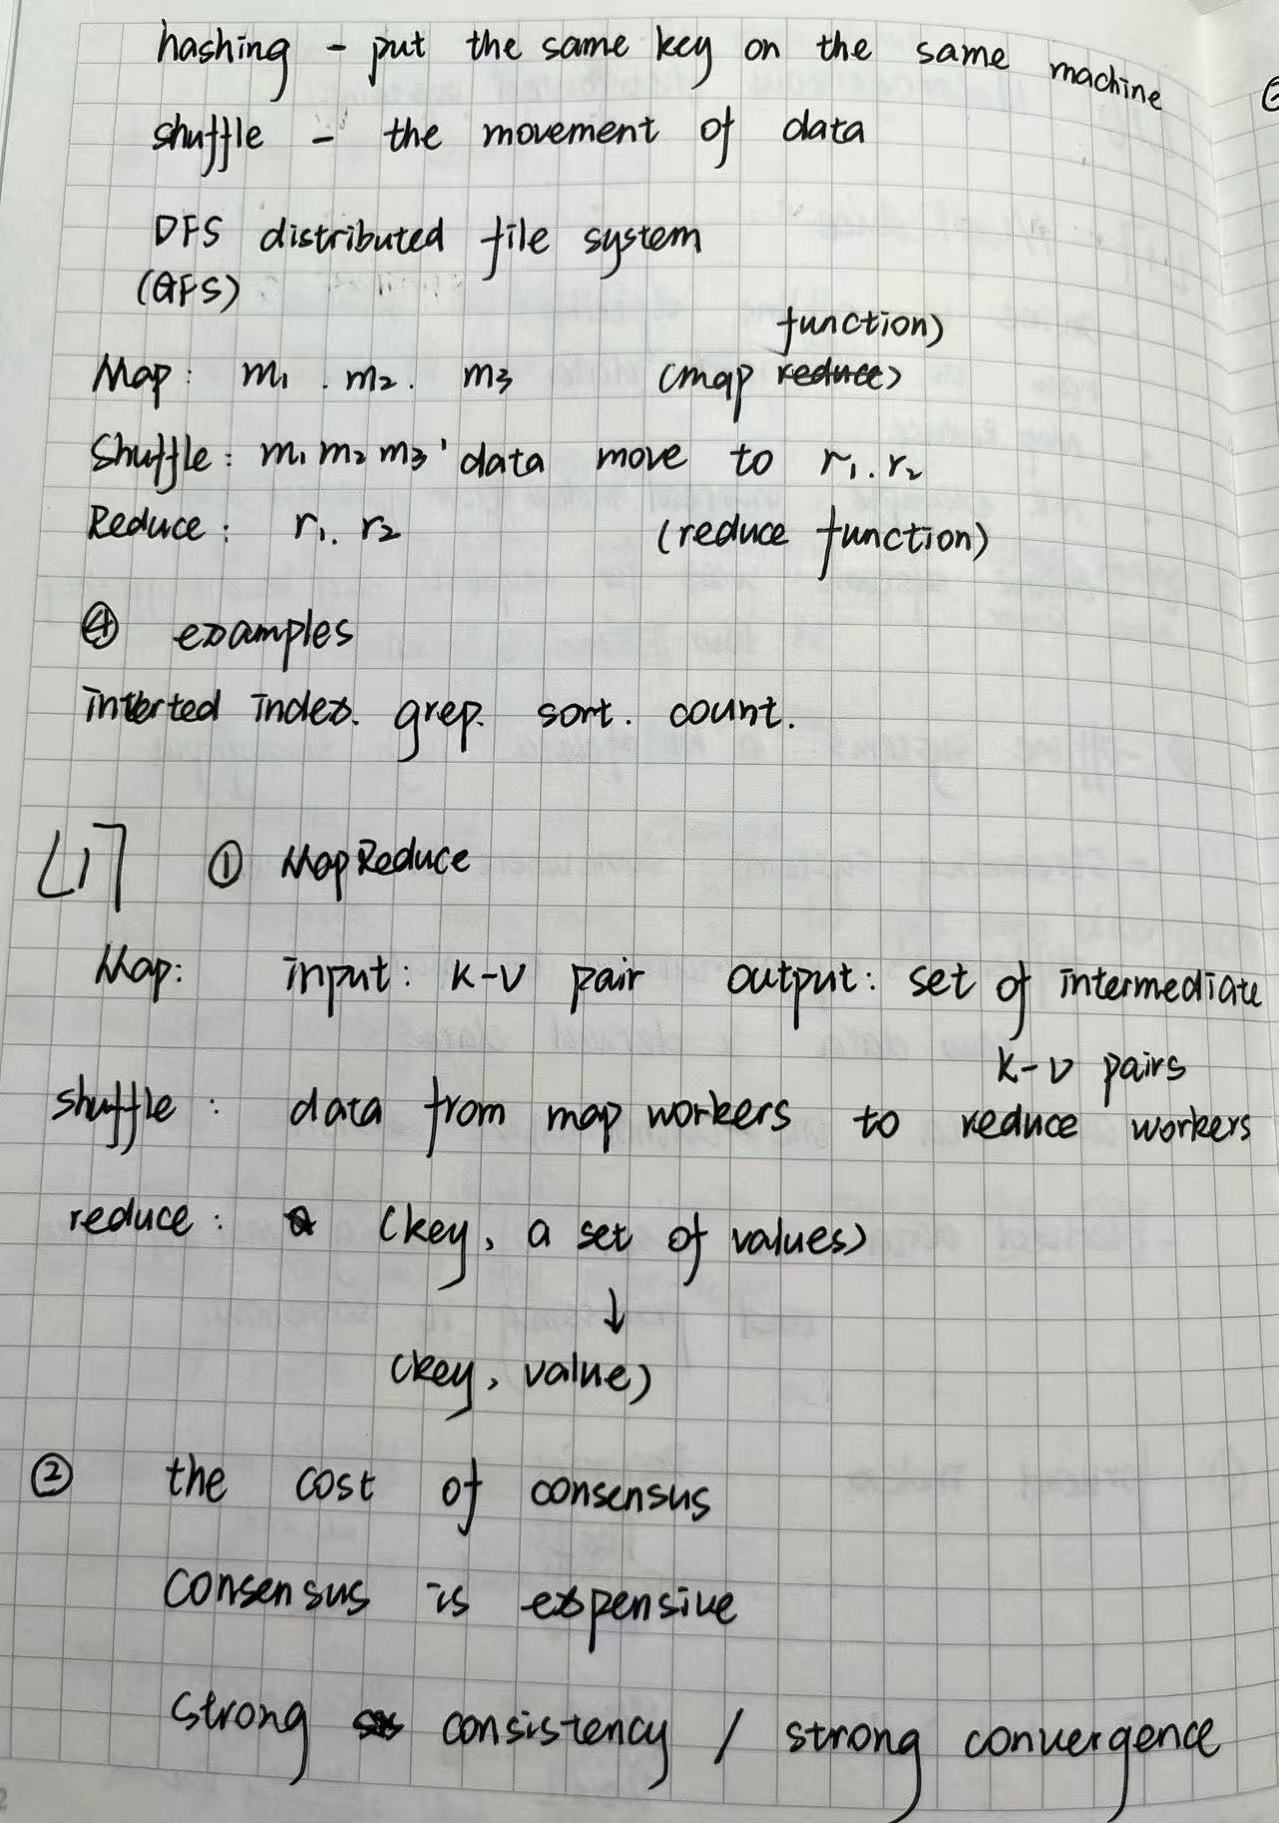 hashing - put the same key on the same machine
shuffle - the movement of data
DFS distributed file system
(GFS)
function)
Map: m1 . m2 . m3 (map reduce)
Shuffle: m1 m2 m3' data move to r1. r2
Reduce: r1. r2 (reduce function)
④ examples
interted index. grep. sort. count.
17 ① MapReduce
Map: input: K-V pair output: set of intermediate
K-V pairs
shuffle: data from map workers to reduce workers
reduce: (key, a set of values)
↓
(key, value)
② the cost of consensus
consensus is expensive
strong consistency / strong convergence